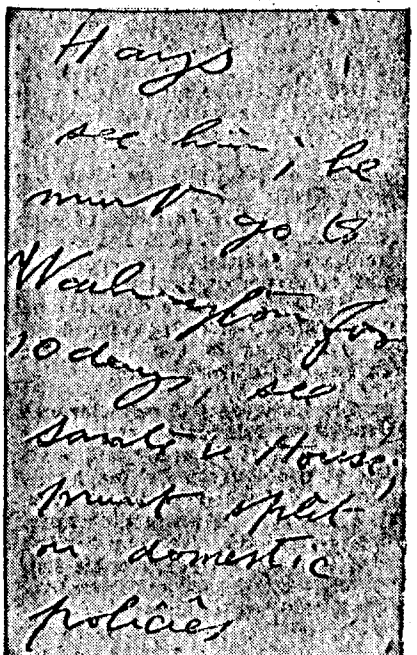 Hays
see him; he
must go to
Washington for
10 days, see
House;
must split
on domestic
policies